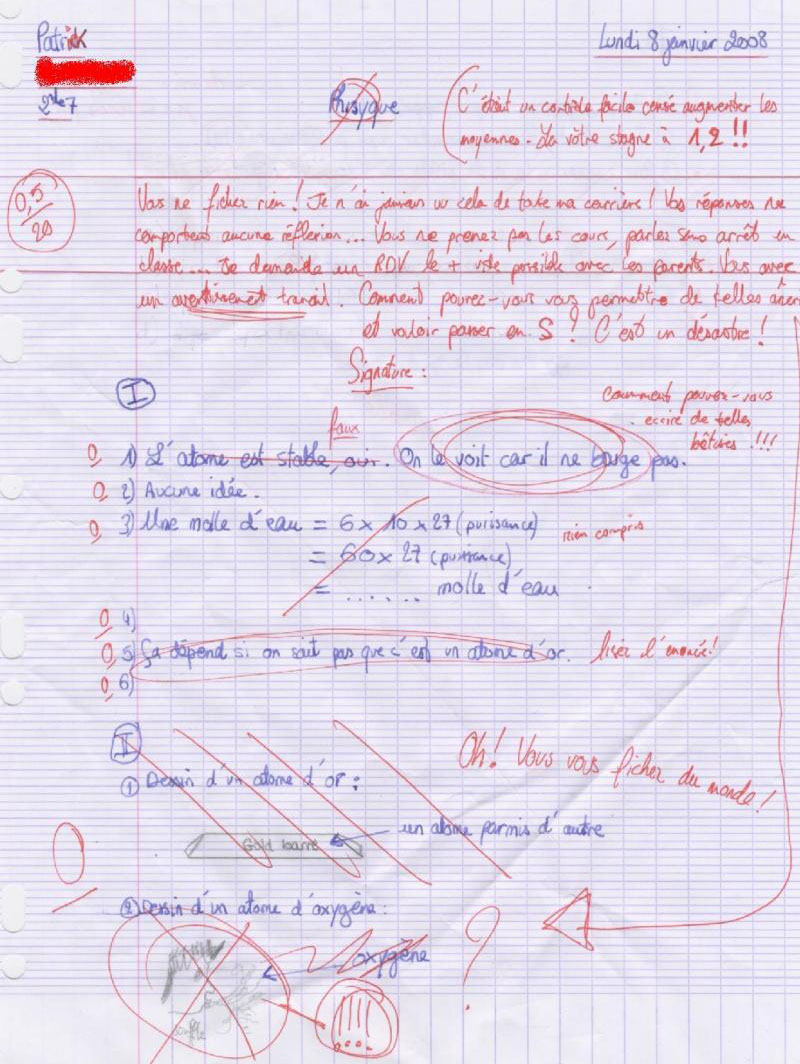 Patrick
Lundi 8 janvier 2008
2nde 7
Phisyque
C'était un contrôle facile censé augmenter les
moyennes. La vôtre stagne à 1,2 !!
0,5
20
Vous ne fichez rien ! Je n'ai jamais vu cela de toute ma carrière ! Vos réponses ne
comportent aucune réflexion... Vous ne prenez pas les cours, parlez sans arrêt en
classe... Je demande un RDV le + vite possible avec les parents. Vous avez
un avertissement travail. Comment pouvez-vous vous permettre de telles âner
et vouloir passer en S ? C'est un désastre !
Signature :
I
Comment pouvez-vous
écrire de telles
bêtises !!!
faux
0 1) L'atome est stable, oui. On le voit car il ne bouge pas.
0 2) Aucune idée.
0 3) Une molle d'eau = 6 x 10 x 27 (puissance) rien compris
= 60 x 27 (puissance)
= ...... molle d'eau
0 4)
0 5) Ça dépend si on sait pas que c'est un atome d'or. lisez l'énoncé !
0 6)
II
Oh ! Vous vous fichez du monde !
① Dessin d'un atome d'or :
Gold barre
un atome parmis d'autre
0
② Dessin d'un atome d'oxygène :
oxygène
?
souffle
!!!!